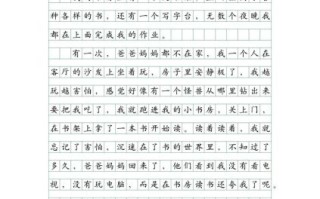 种各样的书。还有一个写字台，无数个夜晚我
都在上面完成我的作业。
有一次，爸爸妈妈都不在家，我一个人在
客厅的沙发上坐着玩，房子里安静极了，我越
玩越害怕，感觉好像有一个怪兽从哪里钻出来
要把我吃了。我就跑进我的小书房，关上门，
在书架上拿了一本书开始读。读着读着，我就
忘记了害怕，沉迷在了书的世界里。不知过了
多久，爸爸妈妈回来了。他们看到我没有看电
视，没有玩电脑，而是在书房读书还夸我了呢。